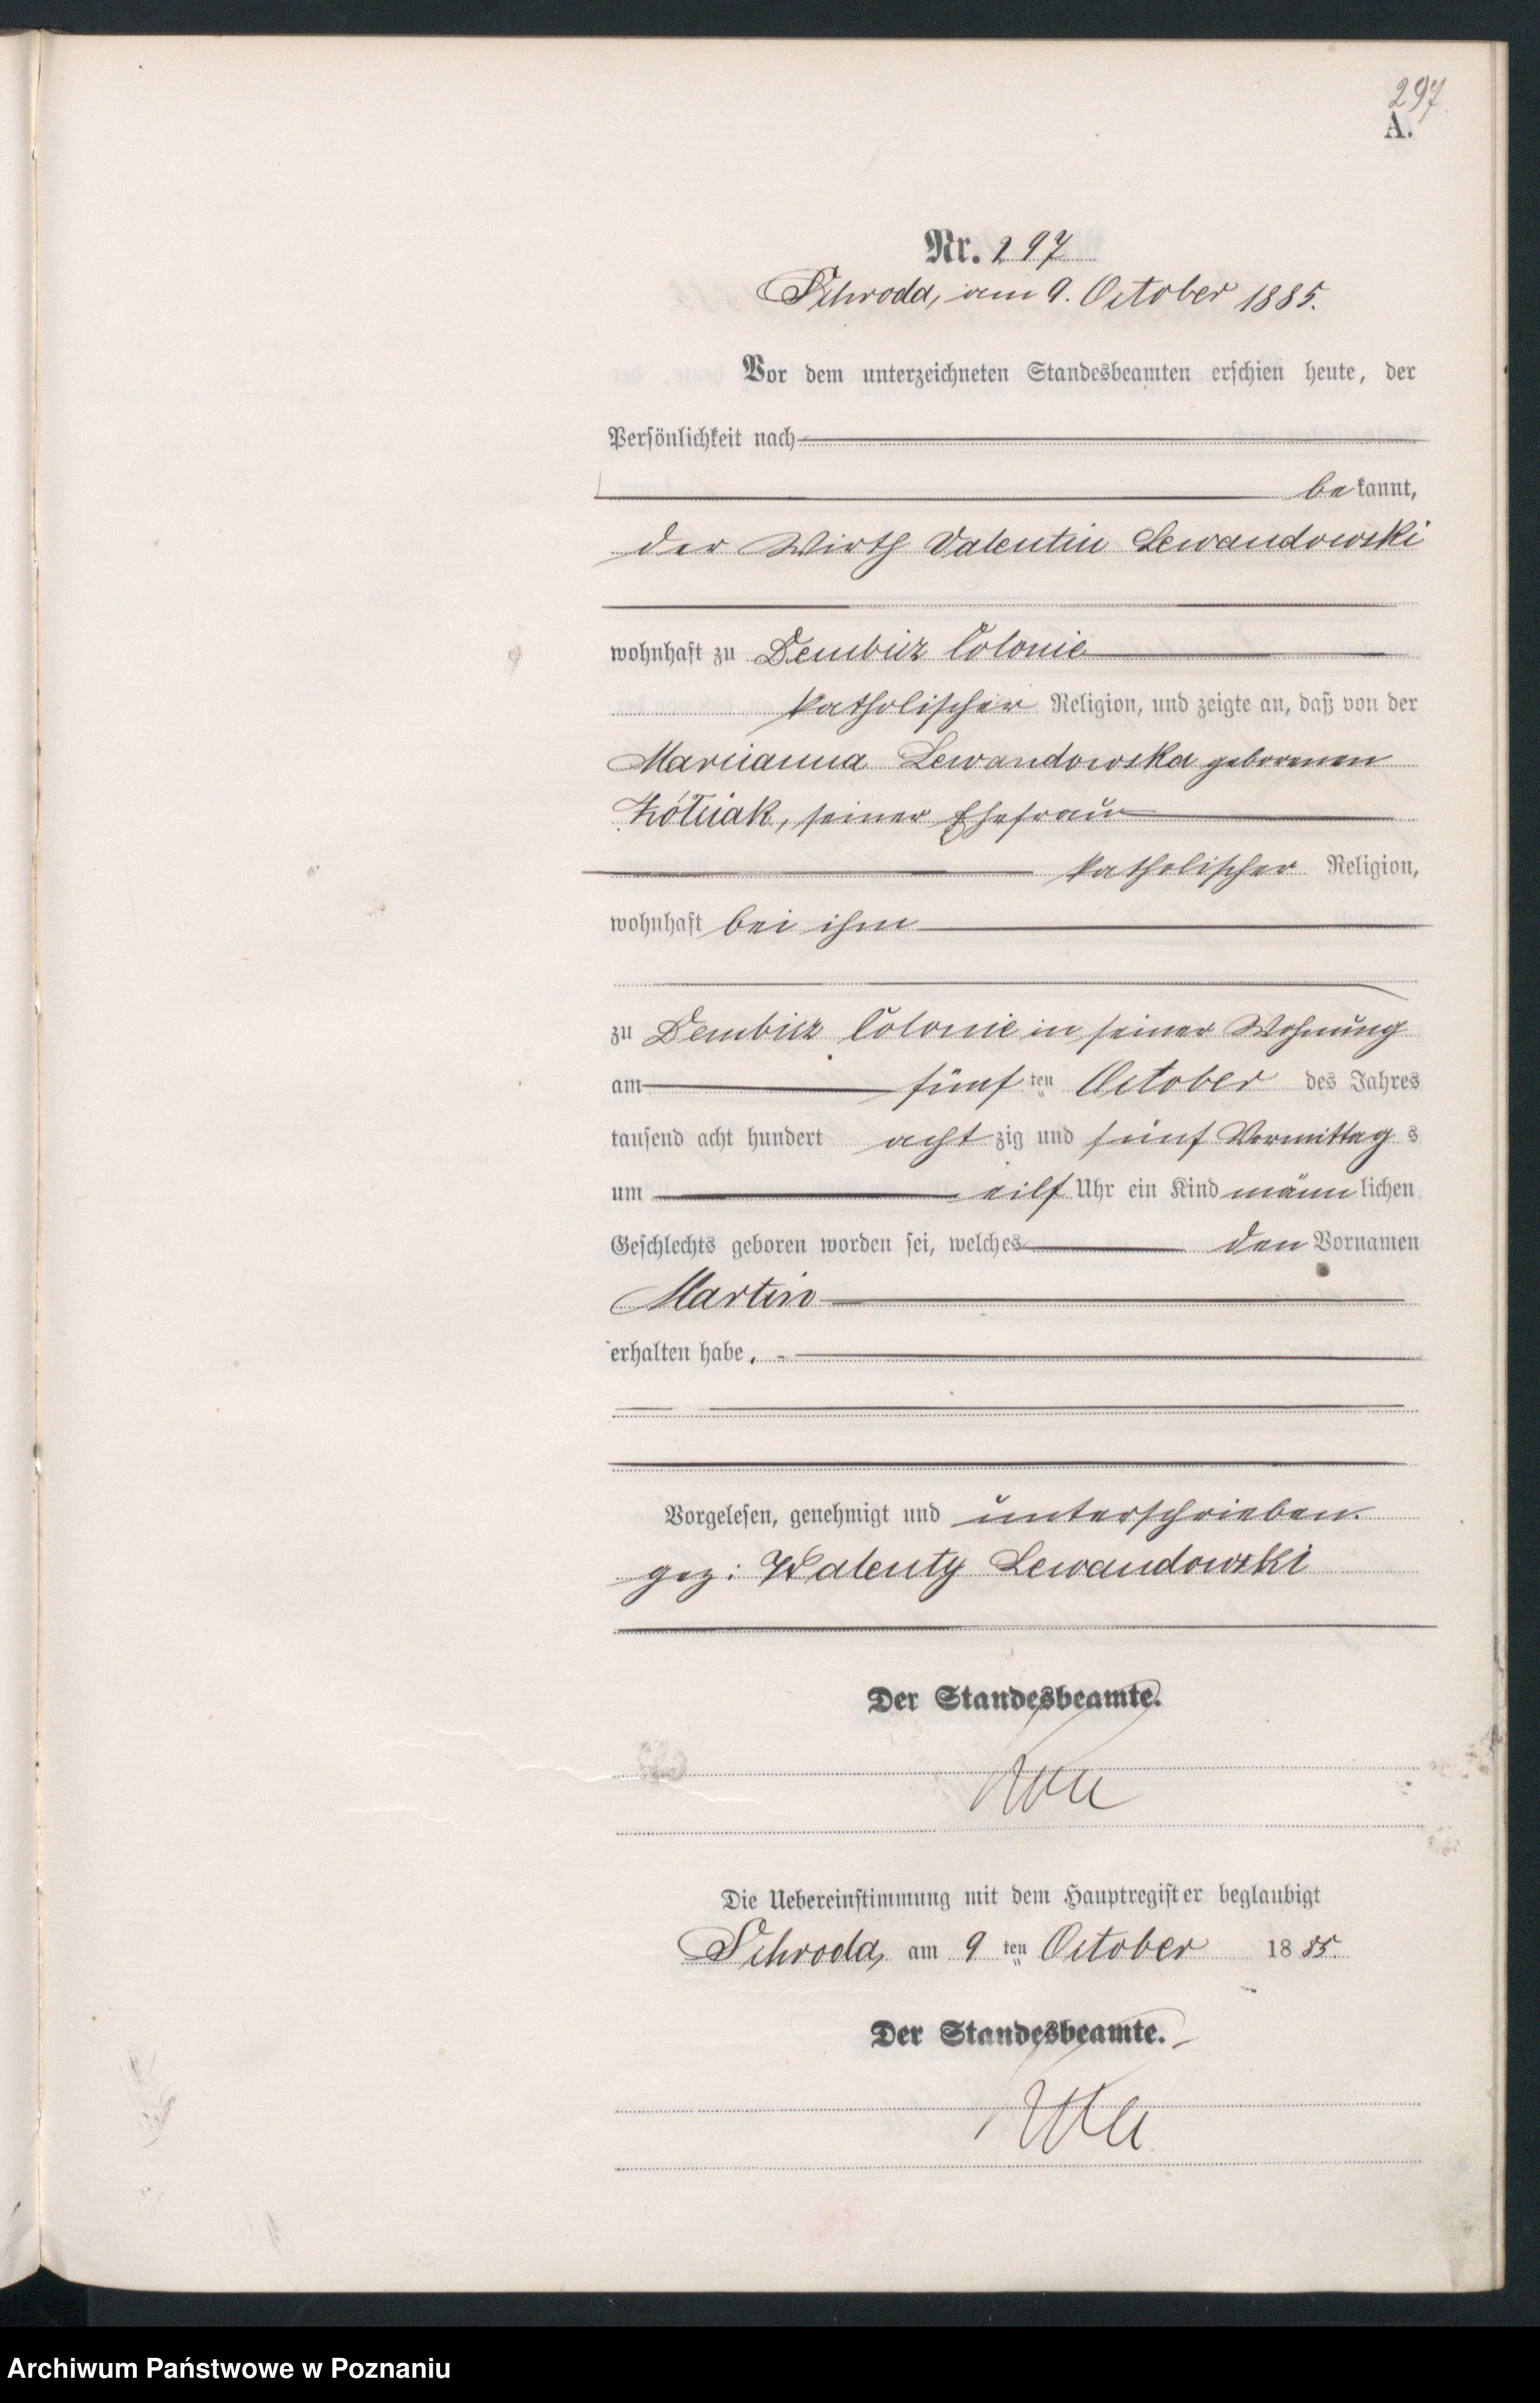 297
A.
Nr. 297
Schroda, am 9. October 1885.
Vor dem unterzeichneten Standesbeamten erschien heute, der
Persönlichkeit nach
be kannt,
der Wirth Valentin Lewandowski
wohnhaft zu Dembicz Colonie
katholischer Religion, und zeigte an, daß von der
Marianna Lewandowska geborenen
seiner Ehefrau
katholischer Religion,
wohnhaft bei ihm
zu Dembicz Colonie in seiner Wohnung
am fünf ten October des Jahres
tausend acht hundert acht zig und fünf Vormittag s
um eilf Uhr ein Kind männ lichen
Geschlechts geboren worden sei, welches den Vornamen
Martin
erhalten habe.
Vorgelesen, genehmigt und unterschrieben.
gez: Walenty Lewandowski
Der Standesbeamte.
Die Uebereinstimmung mit dem Hauptregister beglaubigt
Schroda, am 9 ten October 18 85.
Der Standesbeamte.
Archiwum Państwowe w Poznaniu